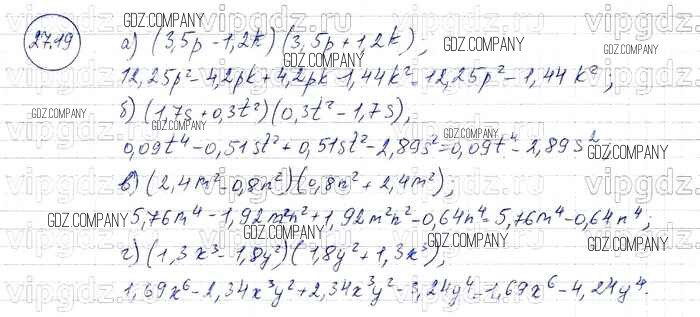 27.19
а) (3,5p - 1,2k)(3,5p + 1,2k),
12,25p² - 4,2pk + 4,2pk - 1,44k² = 12,25p² - 1,44k²;
б) (1,7s + 0,3t²)(0,3t² - 1,7s),
0,09t⁴ - 0,51st² + 0,51st² - 2,89s² = 0,09t⁴ - 2,89s²,
в) (2,4m² - 0,8n²)(0,8n² + 2,4m²);
5,76m⁴ - 1,92m²n² + 1,92m²n² - 0,64n⁴ = 5,76m⁴ - 0,64n⁴;
г) (1,3x³ - 1,8y²)(1,8y² + 1,3x³),
1,69x⁶ - 2,34x³y² + 2,34x³y² - 3,24y⁴ = 1,69x⁶ - 4,24y⁴.
GDZ.COMPANY
GDZ.COMPANY
GDZ.COMPANY
GDZ.COMPANY
GDZ.COMPANY
GDZ.COMPANY
GDZ.COMPANY
GDZ.COMPANY
GDZ.COMPANY
GDZ.COMPANY
GDZ.COMPANY
GDZ.COMPANY
GDZ.COMPANY
vipgdz.ru